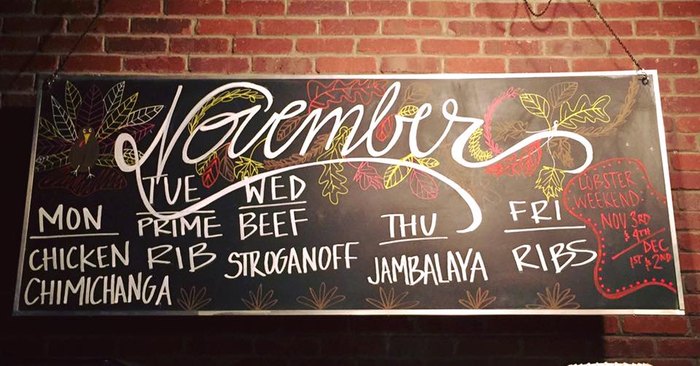 November
MON
CHICKEN
CHIMICHANGA
TUE
PRIME
RIB
WED
BEEF
STROGANOFF
THU
JAMBALAYA
FRI
RIBS
LOBSTER
WEEKEND:
NOV 3RD
& 4TH
DEC
1ST & 2ND